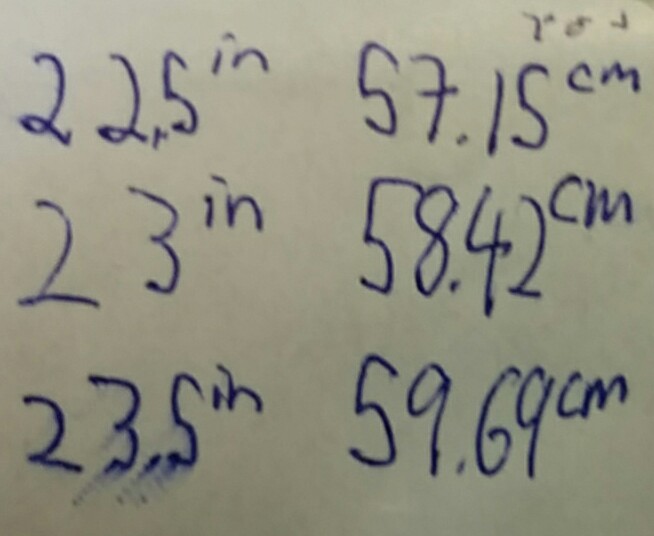 22.5 in 57.15 cm
23 in 58.42 cm
23.5 in 59.69 cm